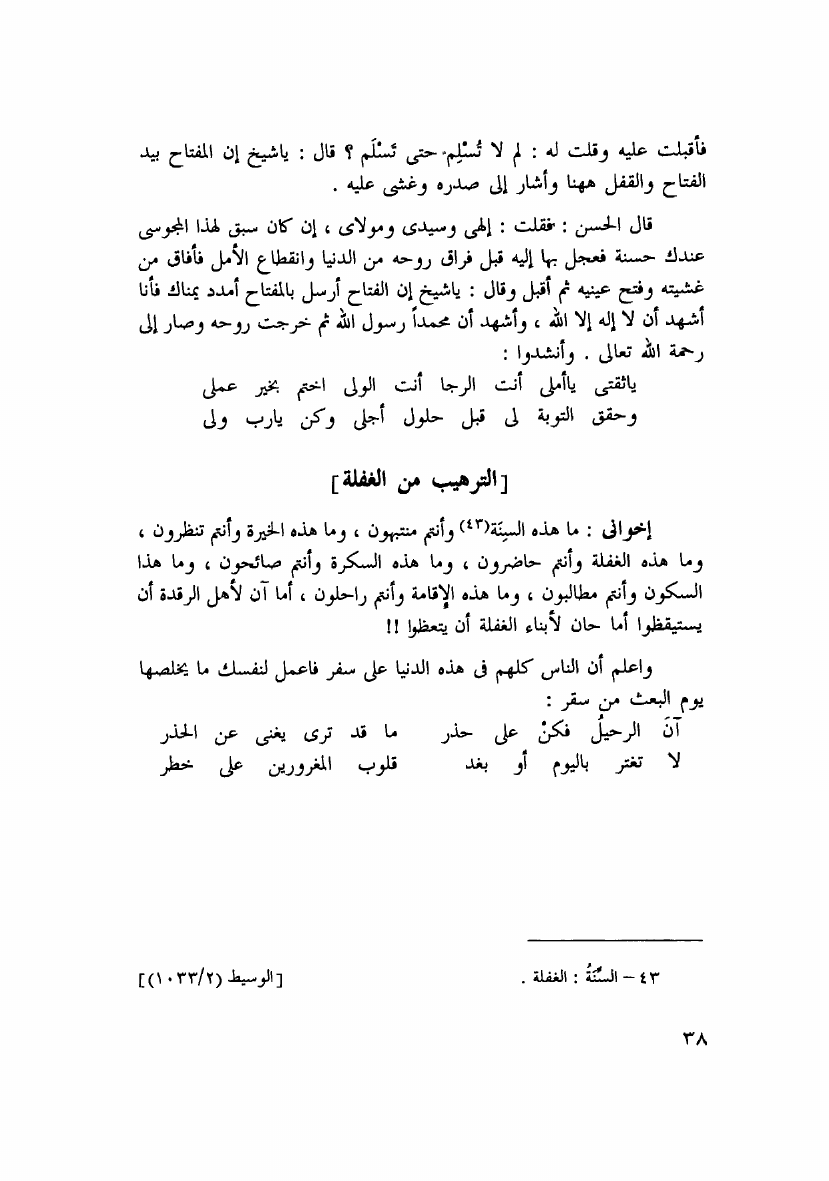 فأقبلت عليه وقلت له : لم لا تُسْلِم حتى تَسْلَم ؟ قال : ياشيخ إن المفتاح بيد
الفتاح والقفل ههنا وأشار إلى صدره وغشى عليه .
قال الحسن : فقلت : إلهى وسيدى ومولاى ، إن كان سبق لهذا المجوسى
عندك حسنة فعجل بها إليه قبل فراق روحه من الدنيا وانقطاع الأمل فأفاق من
غشيته وفتح عينيه ثم أقبل وقال : ياشيخ إن الفتاح أرسل بالمفتاح أمدد يمناك فأنا
أشهد أن لا إله إلا الله ، وأشهد أن محمداً رسول الله ثم خرجت روحه وصار إلى
رحمة الله تعالى . وأنشدوا :
ياثقتى ياأملى أنت الرجا أنت الولى اختم بخير عملى
وحقق التوبة لى قبل حلول أجلى وكن يارب ولى
[الترهيب من الغفلة]
إخوانى : ما هذه السِنَة(٤٣) وأنتم منتبهون ، وما هذه الحيرة وأنتم تنظرون ،
وما هذه الغفلة وأنتم حاضرون ، وما هذه السكرة وأنتم صائحون ، وما هذا
السكون وأنتم مطالبون ، وما هذه الإقامة وأنتم راحلون ، أما آن لأهل الرقدة أن
يستيقظوا أما حان لأبناء الغفلة أن يتعظوا !!
واعلم أن الناس كلهم فى هذه الدنيا على سفر فاعمل لنفسك ما يخلصها
يوم البعث من سقر :
آنَ الرحيلُ فكنْ على حذر ما قد ترى يغنى عن الحذر
لا تغتر باليوم أو بغد قلوب المغرورين على خطر
٤٣ – السِّنَةُ : الغفلة . [الوسيط (١٠٣٣/٢)]
٣٨